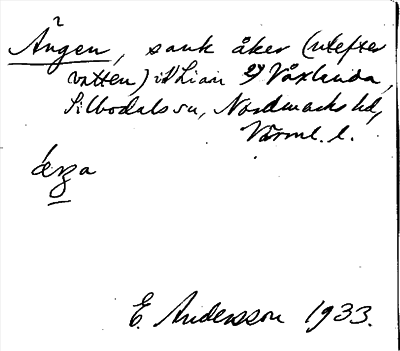 Ängen, sank åker (utefter
vatten) i Lian Växlinda,
Silbodals sn, Nordmarks hd,
Värml. l.
E. Andersson 1933.